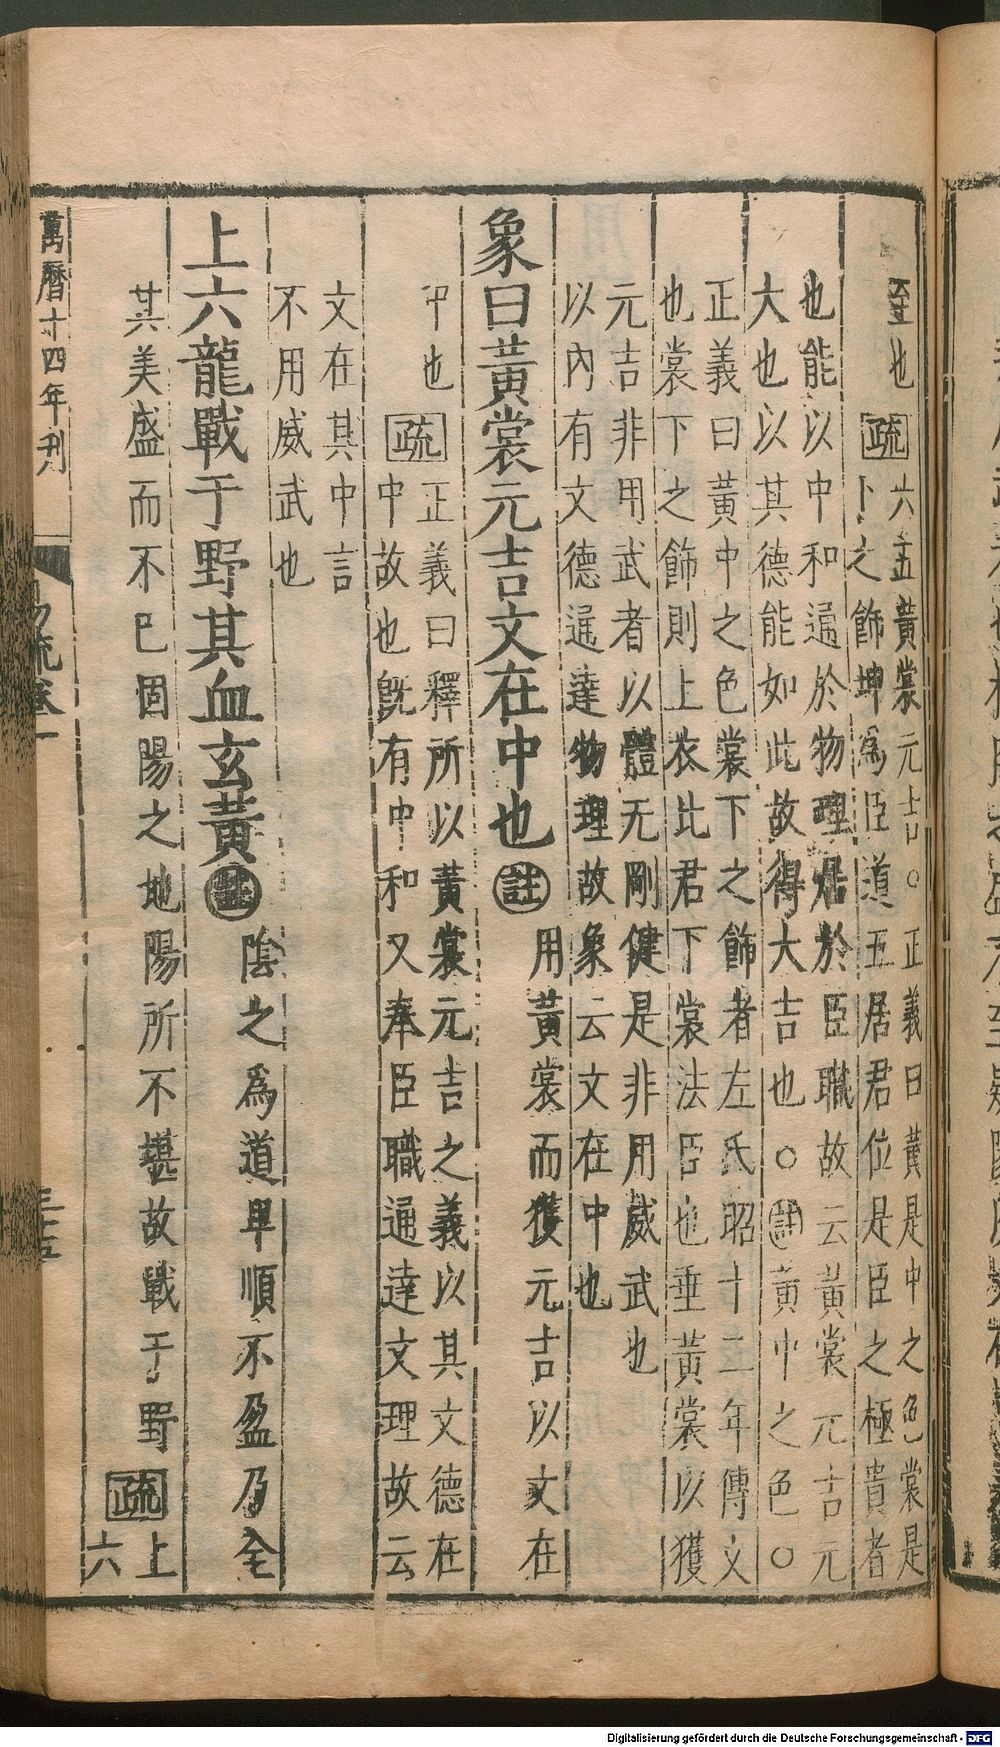 至也
疏
六五黃裳元吉○正義曰黃是中之色裳是
下之飾坤爲臣道五居君位是臣之極貴者
也能以中和通於物理居於臣職故云黃裳元吉元
大也以其德能如此故得大吉也○註黃中之色○
正義曰黃中之色裳下之飾者左氏昭十二年傳文
也裳下之飾則上衣比君下裳法臣也垂黃裳以獲
元吉非用武者以體无剛健是非用威武也
以內有文德通達物理故象云文在中也
象曰黃裳元吉文在中也註用黃裳而獲元吉以文在
中也
疏
正義曰釋所以黃裳元吉之義以其文德在
中故也旣有中和又奉臣職通達文理故云
文在其中言
不用威武也
上六龍戰于野其血玄黃註陰之爲道卑順不盈乃全
其美盛而不已固陽之地陽所不堪故戰于野疏上
六
萬曆十四年刊
易疏卷一
三十五
Digitalisierung gefördert durch die Deutsche Forschungsgemeinschaft - DFG